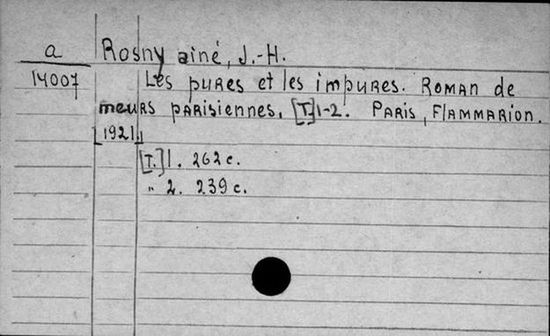 a Rosny aîné, J.-H.
14007 Les pures et les impures. Roman de
meurs parisiennes. [T.] 1-2. Paris, Flammarion.
[1921].
[T.] 1. 262 c.
" 2. 239 c.